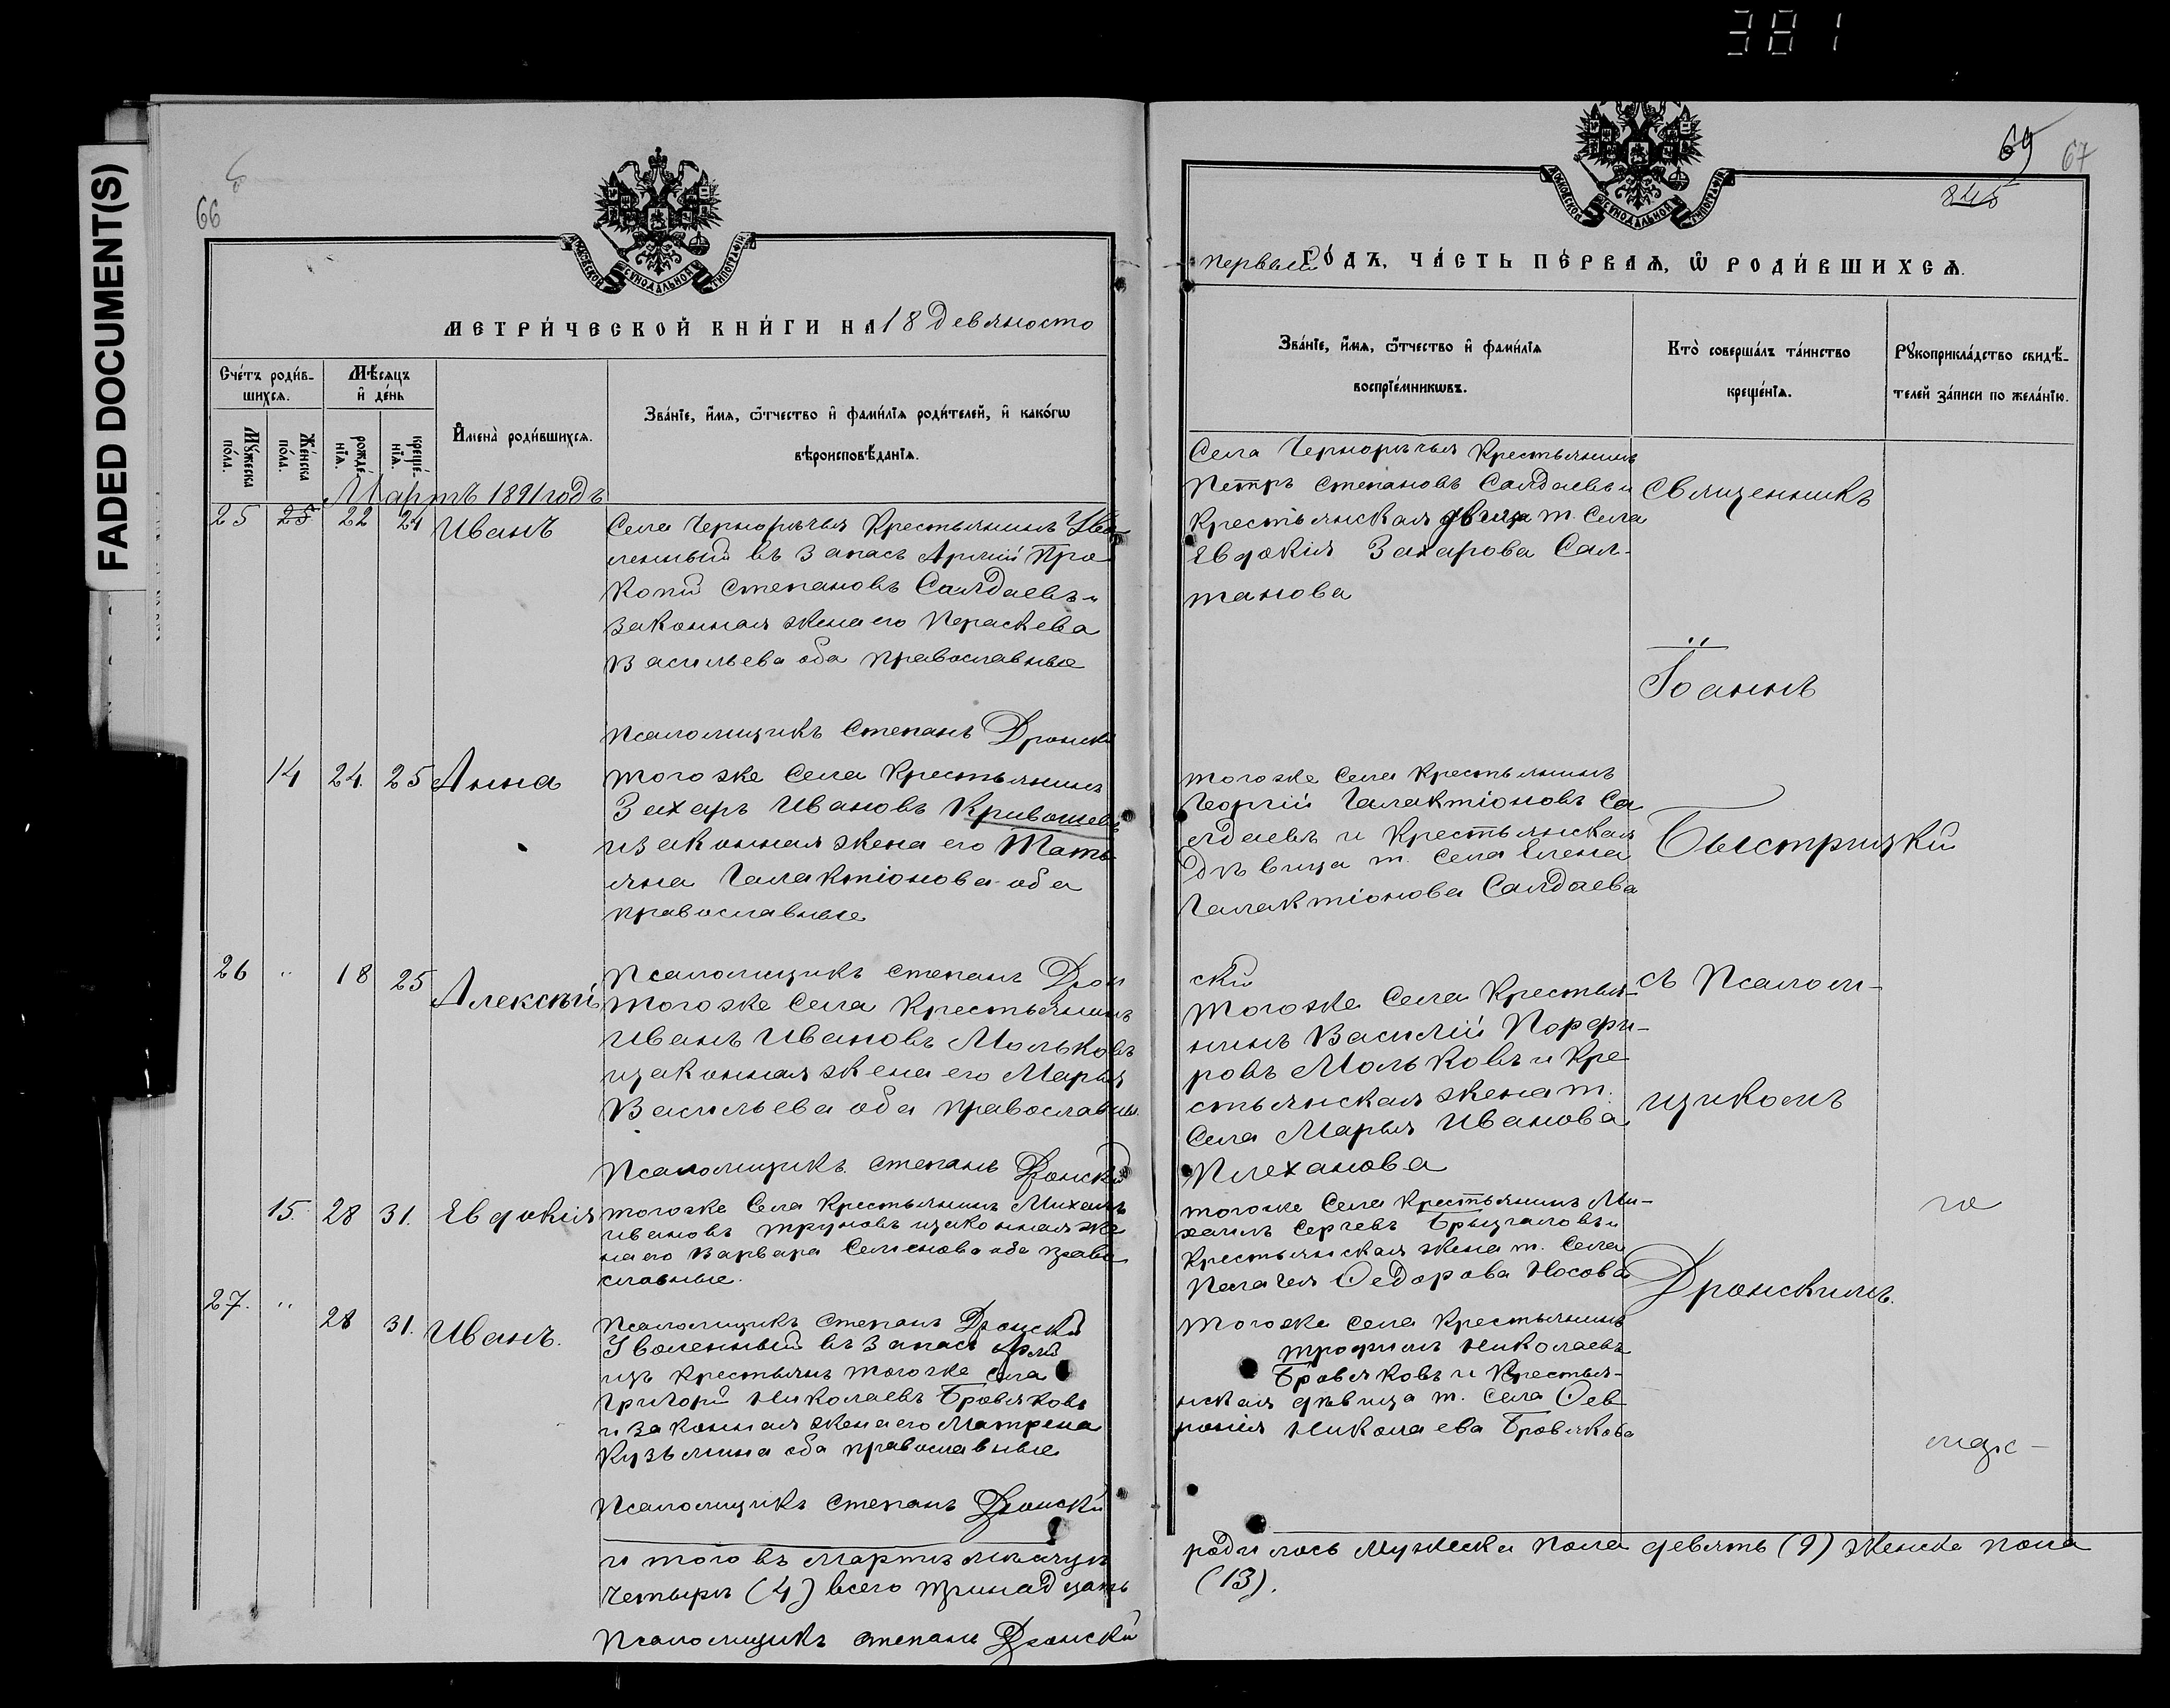 381
FADED DOCUMENT(S)
66
МОСКОВСКОЙ СѴНОДАЛЬНОЙ ТИПОГРАФІИ
МЕТРИ́ЧЕСКОЙ КНИ́ГИ НА 18 девяносто
Сче́тъ роди́в-
шихся.
Мѣ́сяцъ
и҆ де́нь
Мꙋ́жеска
по́ла.
Же́нска
по́ла.
рожде́-
нїѧ.
креще́-
нїѧ.
И҆мена̀ роди́вшихся.
Зва́нїе, и҆́мѧ, ѻ҆́тчество и҆ фами́лїѧ роди́телей, и҆ како́гѡ
вѣроисповѣ́данїѧ.
Мартъ 1891 годъ
25 25 22 24 Иванъ
Села Чернорѣчья Крестьянинъ Уво
ленный въ Запасъ Арміи Про
копій Степановъ Салдаевъ и
законная жена его Пераскева
Васильева оба православные
Псаломщикъ Степанъ Дронскій
14 24. 25 Анна
тогоже Села Крестьянинъ
Захаръ Ивановъ Кривошеевъ
и законная жена его Тать
яна Галактіонова оба
православные
26 " 18 25 Алексѣй
Псаломщикъ Степанъ Дрон
тогоже Села Крестьянинъ
Иванъ Ивановъ Мольковъ
и законная жена его Марья
Васильева оба православны
Псаломщикъ Степанъ Дронскій
15. 28 31. Евдокія
тогоже Села Крестьянинъ Михаилъ
Ивановъ Труновъ и законная же
на его Варвара Семенова оба право
славные.
27. " 28 31. Иванъ.
Псаломщикъ Степанъ Дронскій
Уволенный въ Запасъ Арміи
изъ крестьянъ тогоже села
Григорій Николаевъ Бровяковъ
и законная жена его Матрена
Кузьмина оба православные
Псаломщикъ Степанъ Дронскій
и того въ Мартѣ мѣсяцѣ
четыре (4) всего тринадцать
Псаломщикъ Степанъ Дронскій
69 67
845
МОСКОВСКОЙ СѴНОДАЛЬНОЙ ТИПОГРАФІИ
первый ГО́ДЪ, ЧА́СТЬ ПЕ́РВАѦ, Ѡ҆ РОДИ́ВШИХСѦ.
Зва́нїе, и҆́мѧ, ѻ҆́тчество и҆ фами́лїѧ
воспрїе́мникѡвъ.
Кто̀ соверша́лъ та́инство
креще́нїѧ.
Рꙋкоприкла́дство свидѣ́-
телей за́писи по жела́нїю.
Села Чернорѣчья Крестьянинъ
Петръ Степановъ Салдаевъ и
Крестьянская дѣвица т. Села
Евдокія Захарова Сал-
танова
Священникъ
Іоаннъ
тогоже Села Крестьянинъ
Георгій Галактіоновъ Са
лдаевъ и Крестьянская
дѣвица т. Села Елена
Галактіонова Салдаева
Быстрицкій
скій
тогоже Села Крестья-
нинъ Василій Порфи-
ровъ Мольковъ и Кре
стьянская жена т.
Села Марья Иванова
Плеханова
съ Псалом-
щикомъ
тогоже Села Крестьянинъ Ми-
хаилъ Сергевъ Брызгаловъ и
Крестьянская жена т. Села
Пелагея Ѳедорова Носова
Дронскимъ.
тогоже Села Крестьянинъ
трофимъ Николаевъ
Бровяковъ и Крестья-
нская дѣвица т. Села Фев
ронія Николаева Бровякова
родилось Мужеска пола девять (9) Женска пола
(13).